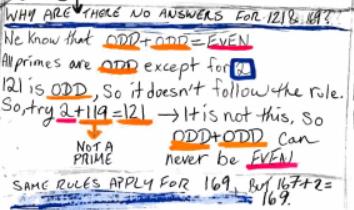 WHY ARE THERE NO ANSWERS FOR 121 & 169?
We know that ODD+ODD=EVEN
All primes are ODD except for 2
121 is ODD, So it doesn't follow the rule.
So, try 2+119=121 → It is not this, so
NOT A PRIME
ODD+ODD can
never be EVEN
SAME RULES APPLY FOR 169, But 167+2=
169.